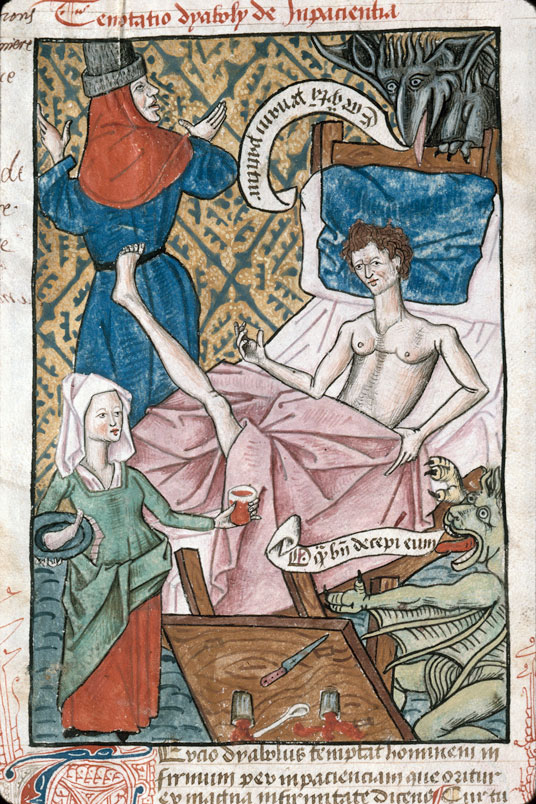 Tenptatio dyaboly de Inpacientia
patitur
q̄ bn̄ decepi eum
Tercio dyabolus temptat hominem in
firmum per inpacienciam que oritur
ex magna infirmitate dicens Cur tu